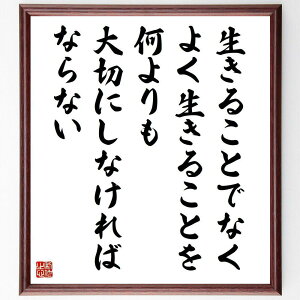 生きることでなく
よく生きることを
何よりも
大切にしなければ
ならない